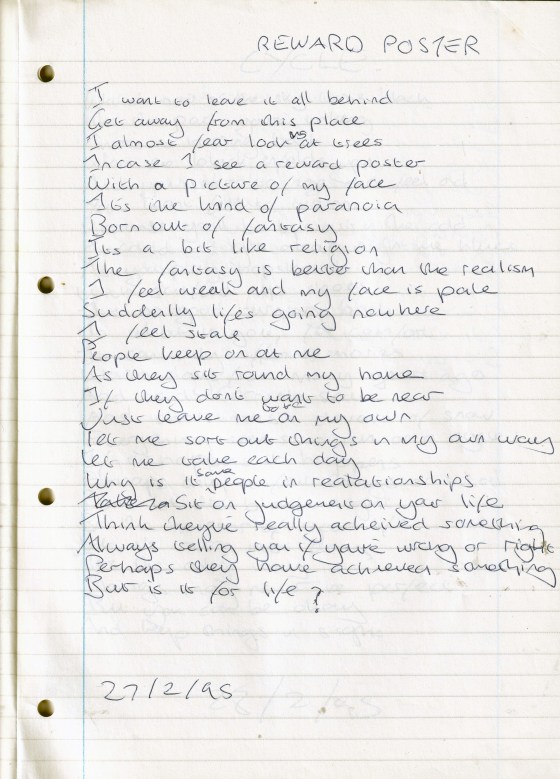 REWARD POSTER
I want to leave it all behind
Get away from this place
I almost fear looking at trees
Incase I see a reward poster
With a picture of my face
It's the kind of paranoia
Born out of fantasy
Its a bit like religion
The fantasy is better than the realism
I feel weak and my face is pale
Suddenly lifes going nowhere
I feel stale
People keep on at me
As they sit round my home
If they dont want to be near
Just leave me on my own
Let me sort out things in my own way
Let me take each day
Why is it some people in realationships
Sit on judgement on your life
Think theyve really acheived something
Always telling you if you're wrong or right
Perhaps they have achieved something
But is it for life ?
27/2/95